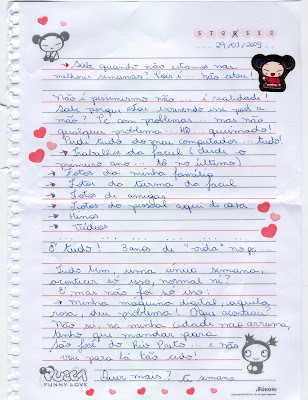 S T Q Q S S D
29/01/2009
→ Sabe quando não estamos nas
melhores semanas? Pois é... não estou!
Não é pessimismo não... é realidade!
Sabe porque estou escrevendo esse post à
mão? Pc com problemas... mas não
qualquer problema. HD... queimado!
Perdi tudo do meu computador... tudo!
→ Trabalhos da facul (desde o
primeiro ano... tô no último)
→ Fotos da minha família
→ Fotos da turma da facul
→ Fotos de amigas
→ Fotos do pessoal aqui de casa
→ Hinos
→ Vídeos
É tudo! 3 anos de "vida" no pc...
Tudo bem, uma única semana,
acontecer só isso, normal né?
É, mas não foi só isso:
→ Minha máquina digital, aquela
rosa, deu problema! O que aconteceu?
Não sei, na minha cidade não arruma,
tenho que mandar para
São José do Rio Preto... e não
vou para lá tão cedo!
Quer mais? A semana
PUCCA
FUNNY LOVE